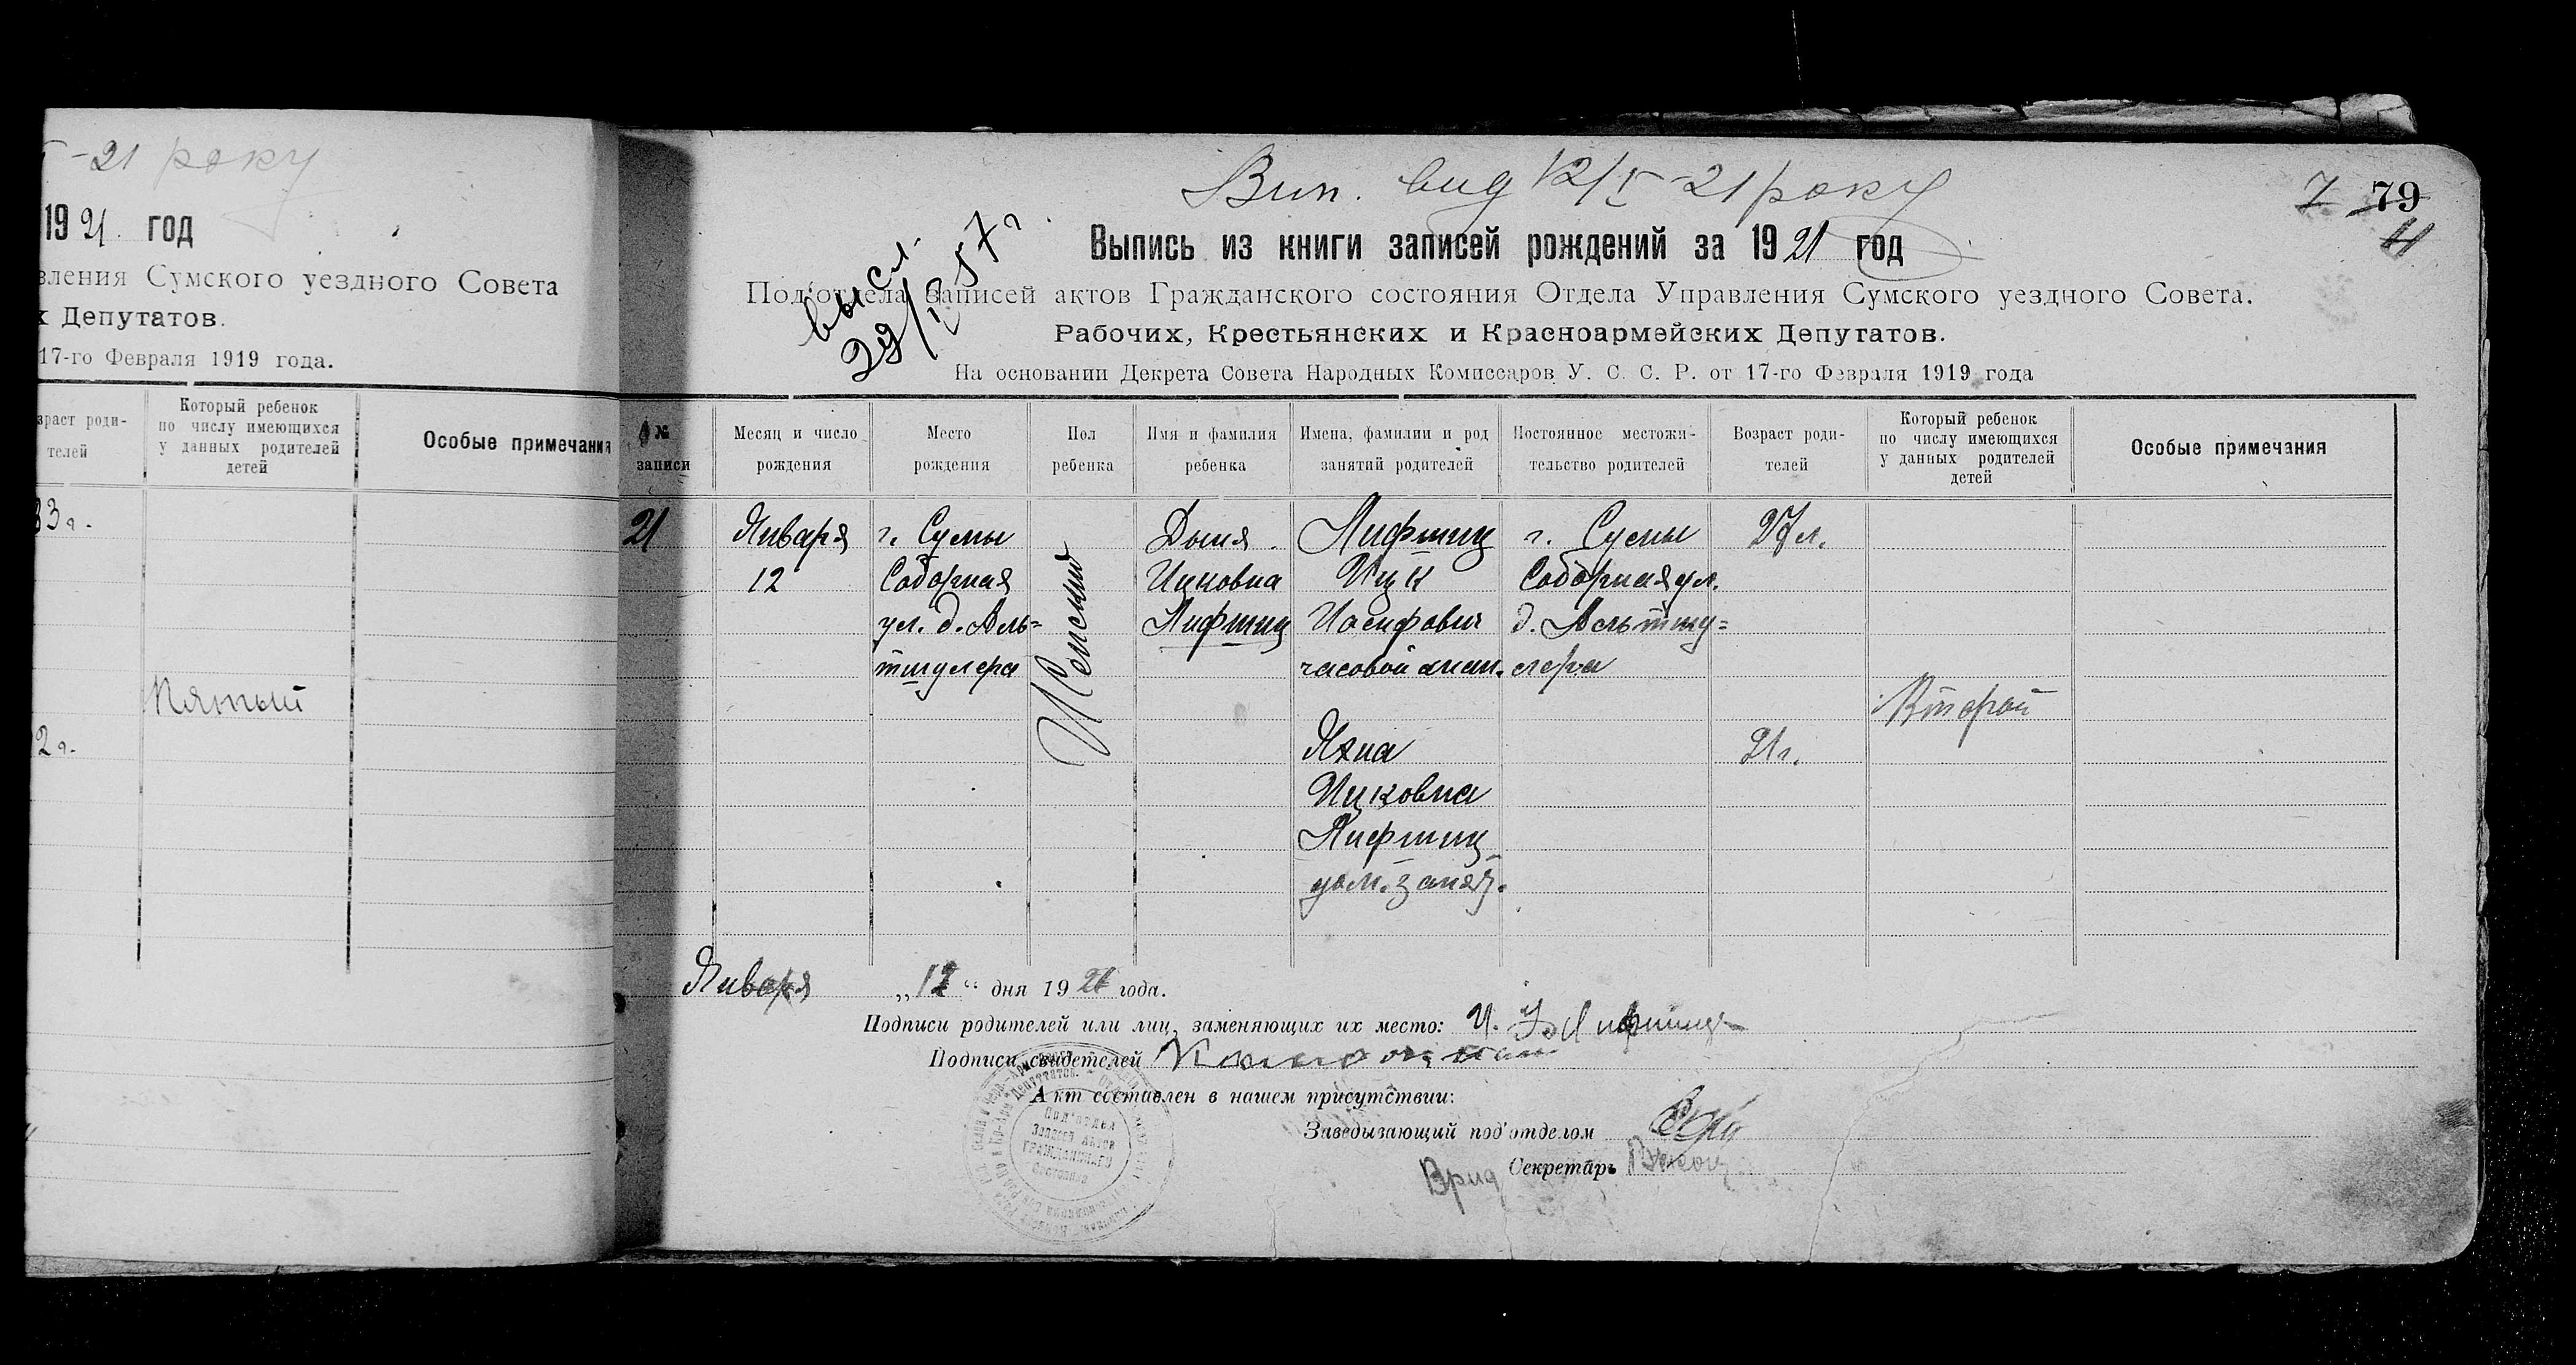 -21 року
1921 год
вления Сумского уездного Совета
х Депутатов.
17-го Февраля 1919 года.
зраст роди-
телей
Который ребенок
по числу имеющихся
у данных родителей
детей
Особые примечания
33 г.
Пятый
2 г.
Вип. вид 12/I-21 року
7 79
высл.
29/IV 57 г
Выпись из книги записей рождений за 1921 год
Под'отдела записей актов Гражданского состояния Отдела Управления Сумского уездного Совета.
Рабочих, Крестьянских и Красноармейских Депутатов.
На основании Декрета Совета Народных Комиссаров У. С. С. Р. от 17-го Февраля 1919 года
№
записи
Месяц и число
рождения
Место
рождения
Пол
ребенка
Имя и фамилия
ребенка
Имена, фамилии и род
занятий родителей
Постоянное местожи-
тельство родителей
Возраст роди-
телей
Который ребенок
по числу имеющихся
у данных родителей
детей
Особые примечания
21
Января
12
г. Сумы
Соборная
ул. д. Аль=
тшулера
Женский
Дыня
Ицковна
Лифшиц
Лифшиц
Ицк
Иосифович
часовой
Яхна
Ицковна
Лифшиц
дом. занят.
г. Сумы
Соборная ул.
д. Альтшу=
лера
27 л.
21 г.
Второй
Января „12“ дня 1921 года.
Подписи родителей или лиц, заменяющих их место: И. Лифшиц
Подписи свидетелей
Акт составлен в нашем присутствии:
Заведывающий под'отделом
Врид Секретарь
Под'отдел
Записей Актов
Гражданского
Состояния